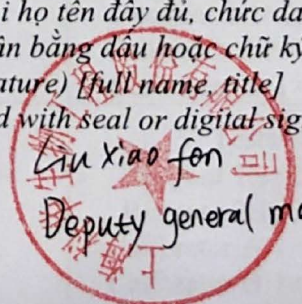 i họ tên đầy đủ, chức da
ận bằng dấu hoặc chữ ký
ature) [full name, title]
d with seal or digital sig
Liu Xiao fen
Deputy general ma
工程股份有限公司